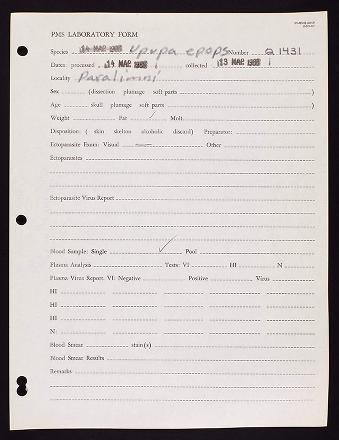 PMS LABORATORY FORM
Species 14 MAR 1968 Upupa epops Number Q 1431
Dates: processed 14 MAR 1968 collected 13 MAR 1968
Locality Paralimni
Sex (dissection plumage soft parts )
Age skull plumage soft parts )
Weight Fat Molt
Disposition: ( skin skelton alcoholic discard) Preparator:
Ectoparasite Exam: Visual Other
Ectoparasites
Ectoparasite Virus Report
Blood Sample: Single ✓ Pool
Plasma Analysis Tests: VI HI N
Plasma Virus Report: VI: Negative Positive Virus
HI
HI
HI
N:
Blood Smear stain(s)
Blood Smear Results
Remarks